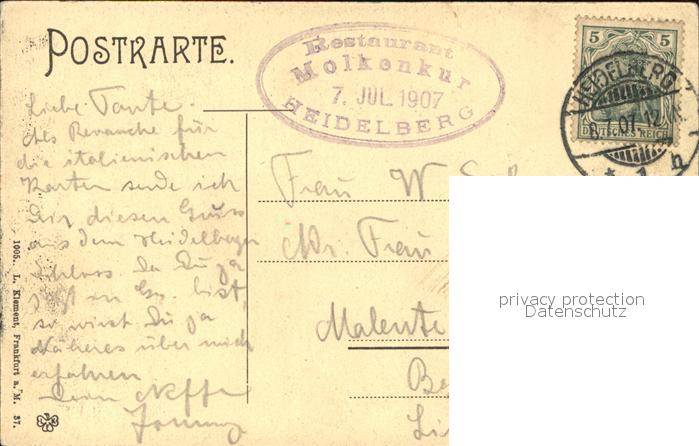 POSTKARTE.
Restaurant
Molkenkur
7. JUL. 1907
HEIDELBERG
5 5
HEIDELBERG
DEUTSCHES REICH
Liebe Tante.
Als Revanche für
die italienischen
Karten sende ich
Dir diesen Gruss
aus dem Heidelberger
Schloss. Da Du ja
jetzt in bist,
so wirst Du ja
Näheres über mich
erfahren
Dein Neffe
Frau W
Frau
Malente
1005. L. Klement, Frankfurt a. M. 37.
privacy protection
Datenschutz